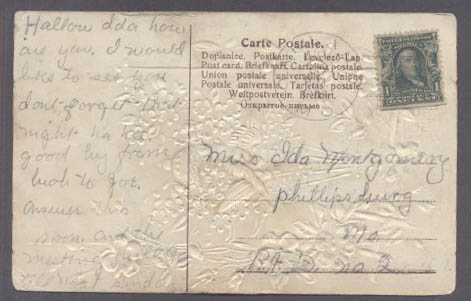 Hallow dda how
are you, I would
like to see you
dont forget that
night ha ha
good by from
to Joe.
answer this
soon and the
meeting
next sunday
Carte Postale.
Dopisnice. Postkarte. Levelező-Lap.
Post card. Briefkaart. Cartolina postale.
Union postale universelle. Unione
Postale universale. Tarjetas postal.
Weltpostverein. Brefkort.
Открытое письмо
1 1
Miss Ida Montgomery
phillipsburg
Mo
R.F.D. no 2